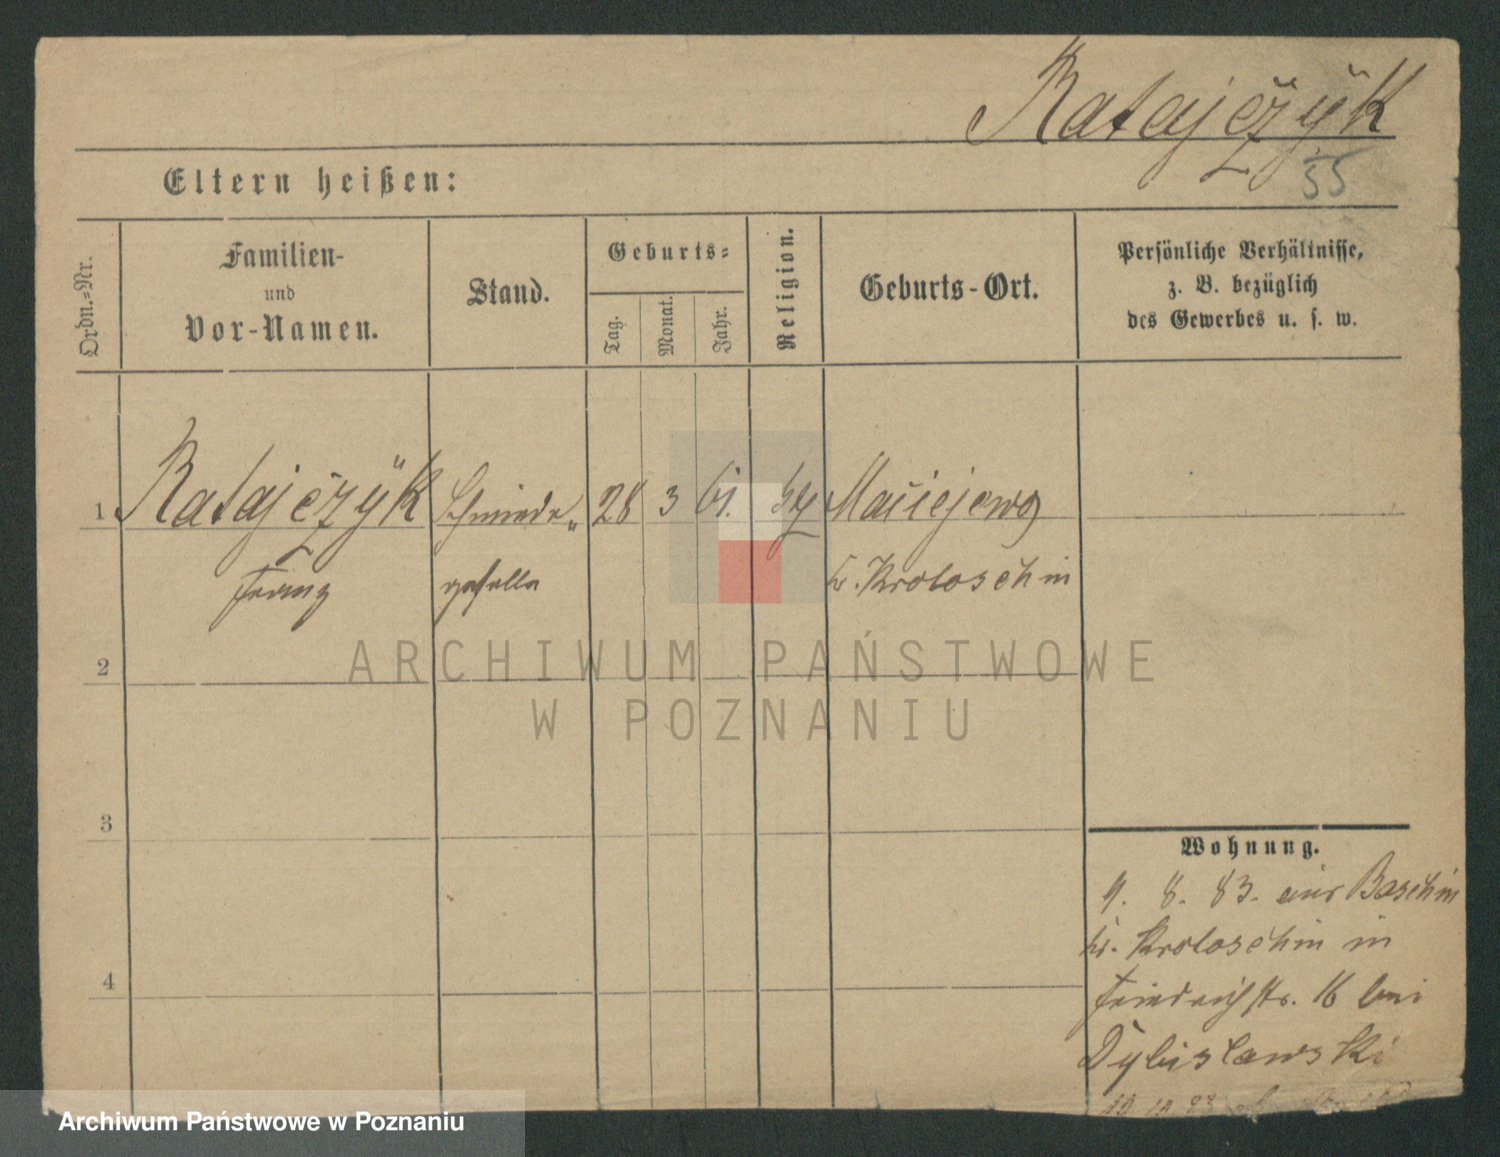 Ratajczÿk
55
Eltern heißen:
Ordn.=Nr.
Familien-
und
Vor-Namen.
Stand.
Geburts=
Tag.
Monat.
Jahr.
Religion.
Geburts-Ort.
Persönliche Verhältnisse,
z. B. bezüglich
des Gewerbes u. s. w.
1 Ratajczÿk Schmiede- 28 3 61. Maciejewo
Franz geselle Kr. Krotoschin
2
3
4
Wohnung.
9. 8. 83. aus Baschin
Kr. Krotoschin in
Friedrichstr. 16 bei
Dybislawski
ARCHIWUM PAŃSTWOWE
W POZNANIU
Archiwum Państwowe w Poznaniu